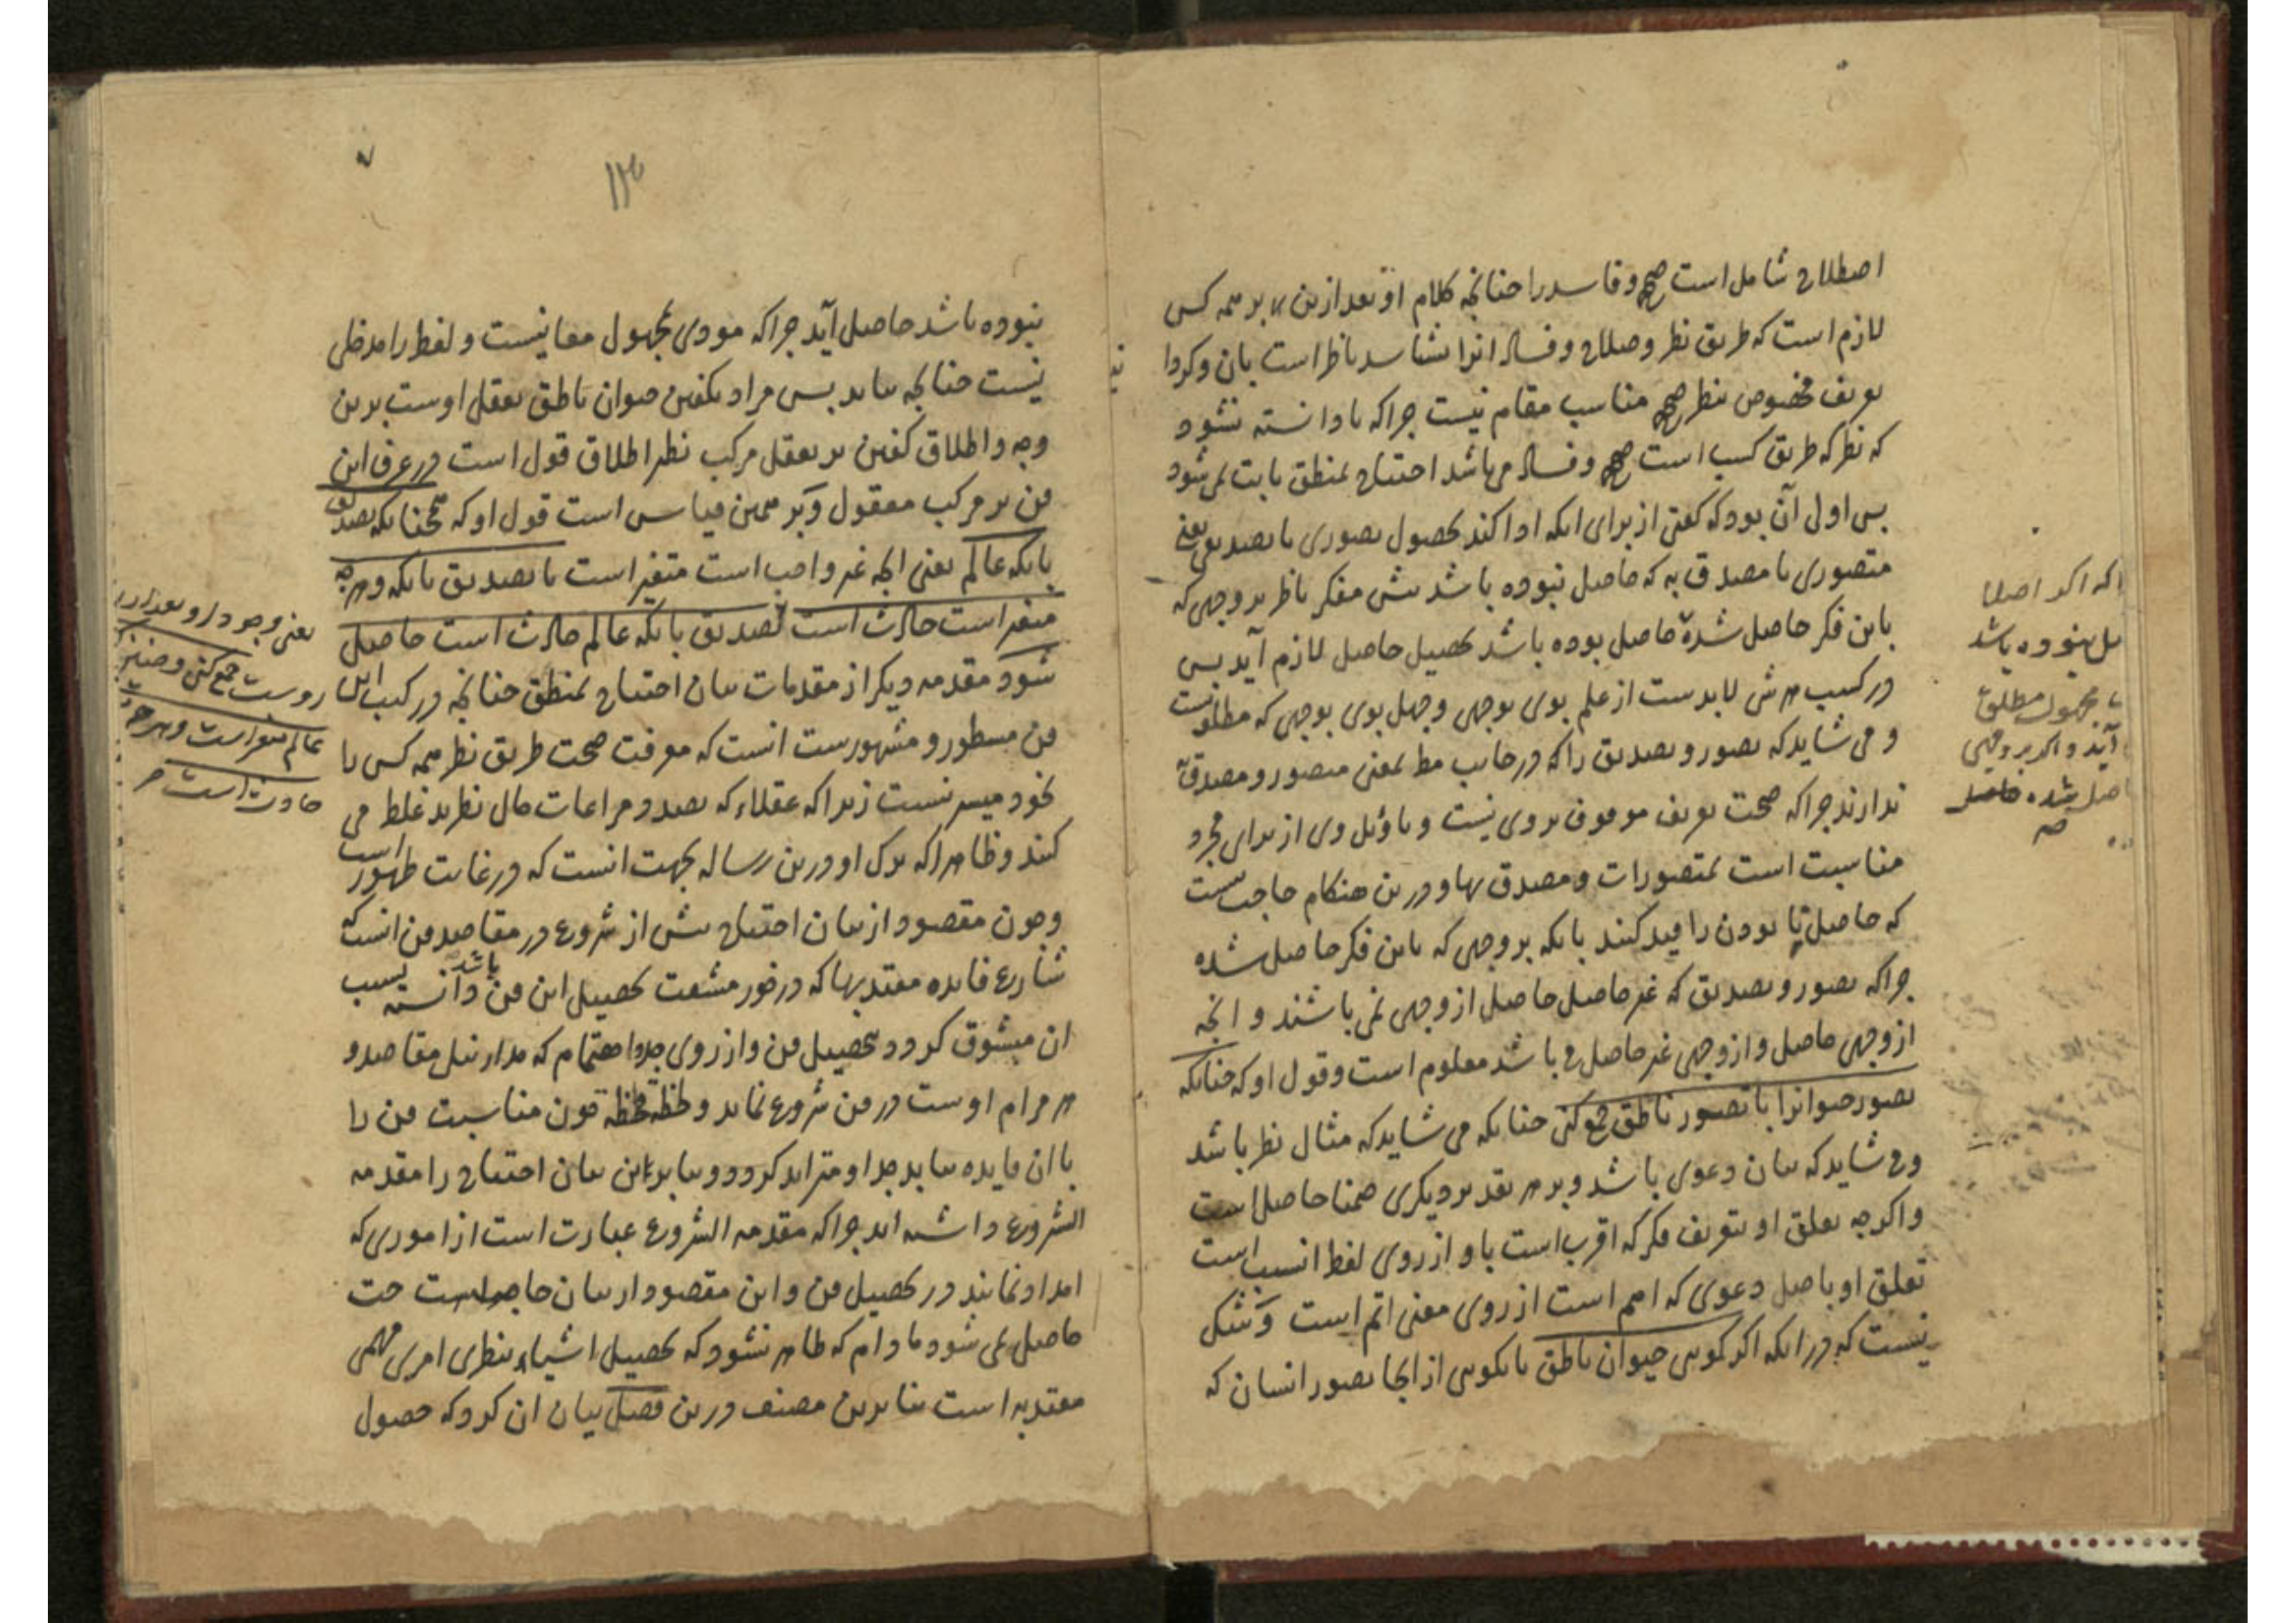 اصطلاح شامل است صحیح و فاسد را چنانچه کلام او بعد ازین که بر همه کس
لازم است که طریق نظر و صلاح و فساد انرا بشناسد ناظر است بان و کردا
تعریف مخصوص بنظر صحیح مناسب مقام نیست چراکه تا دانسته نشود
که نظر که طریق کسب است صحیح و فساد می باشد احتیاج بمنطق ثابت نمی شود
پس اولی آن بود که کفتی از برای انکه ادا کند بحصول تصوری یا تصدیقی یعنی
متصوری یا مصدق به که حاصل نبوده باشد پیش مفکر ناظر بر وجهی که
باین فکر حاصل شده حاصل بوده باشد تحصیل حاصل لازم آید پس
در کسب هر شی لابدست از علم بوی بوجهی و جهل بوی بوجهی که مطلوبست
و می شاید که تصور و تصدیق را که در جانب مط بمعنی متصور و مصدق به
ندارند چراکه صحت تعریف موقوف بر وی نیست و تاویل وی از برای مجرد
مناسبت است بمتصورات و مصدق بها و درین هنکام حاجت نیست
که حاصل نا بودن را قید کنند بانکه بر وجهی که باین فکر حاصل شده
چراکه تصور و تصدیق که غیر حاصل حاصل از وجهی نمی باشند و انچه
از وجهی حاصل و از وجهی غیر حاصل می باشد معلوم است و قول او که چنانکه
تصور حیوانرا با تصور ناطق جمع کنی چنانکه می شاید که مثال نظر باشد
و می شاید که بیان دعوی باشد و بر هر تقدیر دیکری ضمنا حاصل است
و اکرچه تعلق او بتعریف فکر که اقرب است باو از روی لفظ انسب است
تعلق او باصل دعوی که اهم است از روی معنی اتم است و شک
نیست که در انکه اکر کویی حیوان ناطق یا نکویی از انجا تصور انسان که
اکه اکر اصلا
صل نبوده باشد
مجهول مطلق
آید و اکر بر وجهی
اصل شده حاصل
نبوده باشد حاصل آید چراکه مودی بمجهول معانیست و لفظ را مدخلی
نیست چنانچه بیاید پس مراد بکفتن حیوان ناطق تعقل اوست برین
وجه و اطلاق کفتن بر تعقل مرکب نظر اطلاق قول است در عرف این
فن بر مرکب معقول و بر همین قیاس است قول او که همچنانکه تصدیق
بانکه عالم یعنی انچه غیر واجب است متغیر است با تصدیق بانکه و هرچه
متغیر است حادث است تصدیق بانکه عالم حادث است حاصل
شود مقدمه دیکر از مقدمات بیان احتیاج بمنطق چنانچه در کتب این
فن مسطور و مشهورست انست که معرفت صحت طریق نظر همه کس را
بخود میسر نیست زیرا که عقلاء که بصدد مراعات حال نظرند غلط می
کنند و ظاهرا که ترک او درین رساله بجهت انست که در غایت ظهور است
و چون مقصود از بیان احتیاج پیش از شروع در مقاصد فن انست که
شارع فایده معتد بها که در خور مشقت تحصیل این فن باشد دانسته بسبب
ان مشوق کردد بتحصیل فن و از روی جد و اهتمام که مدار نیل مقاصد و
هر مرام اوست در فن شروع نماید و لحظه فلحظه چون مناسبت فن را
با ان فایده بیابد جد او متزاید کردد و بنابراین بیان احتیاج را مقدمه
الشروع داشته اند چراکه مقدمه الشروع عبارت است از اموری که
امداد نمایند در تحصیل فن و این مقصود از بیان حاجت
حاصل نمی شود مادام که ظاهر نشود که تحصیل اشیاء بنظری امری مهمی
معتد به است بنا برین مصنف درین فصل بیان ان کرد که حصول
یعنی وجود دارد بعد از
روست جمع کنی و صنیز
عالم متغیر است و هرچه
حادث است